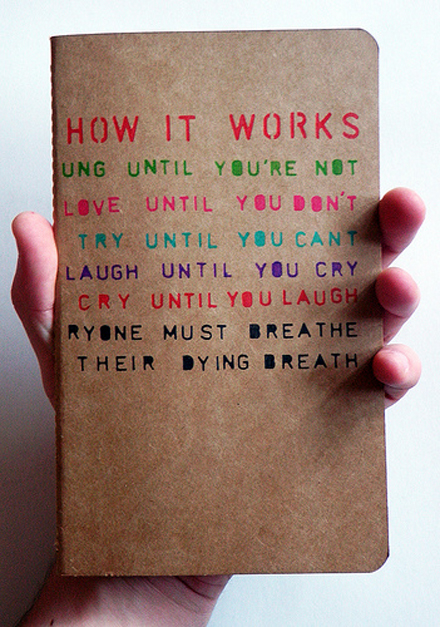 HOW IT WORKS
UNG UNTIL YOU'RE NOT
LOVE UNTIL YOU DON'T
TRY UNTIL YOU CANT
LAUGH UNTIL YOU CRY
CRY UNTIL YOU LAUGH
RYONE MUST BREATHE
THEIR DYING BREATH